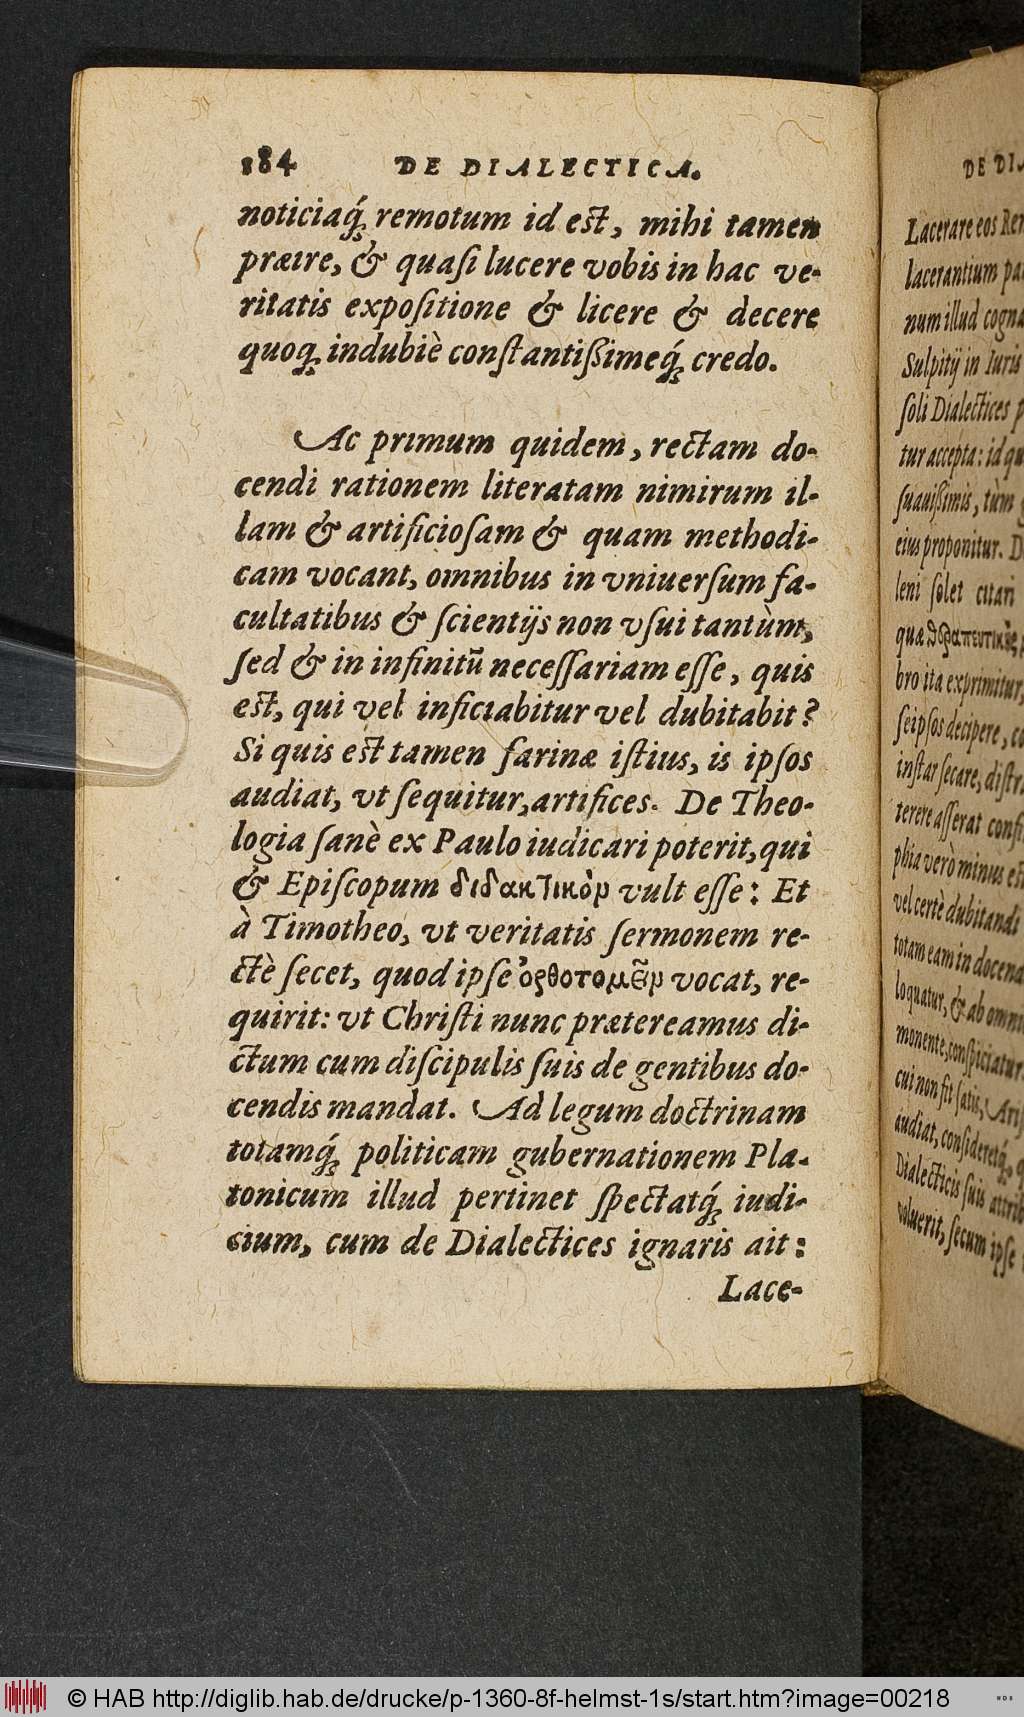 184 DE DIALECTICA.
noticiaq́; remotum id est, mihi tamen
præire, & quaſi lucere vobis in hac ve-
ritatis expoſitione & licere & decere
quoq; indubiè conſtantißimeq́; credo.
Ac primum quidem, rectam do-
cendi rationem literatam nimirum il-
lam & artificioſam & quam methodi-
cam vocant, omnibus in vniuerſum fa-
cultatibus & ſcientijs non vſui tantùm,
ſed & in infinitū neceſſariam eſſe, quis
est, qui vel inficiabitur vel dubitabit?
Si quis est tamen farinæ iſtius, is ipſos
audiat, vt ſequitur, artifices. De Theo-
logia ſanè ex Paulo iudicari poterit, qui
& Epiſcopum διδακτικὸν vult eſſe: Et
à Timotheo, vt veritatis ſermonem re-
ctè ſecet, quod ipſe ὀρθοτομεῖν vocat, re-
quirit: vt Chriſti nunc prætereamus di-
ctum cum diſcipulis ſuis de gentibus do-
cendis mandat. Ad legum doctrinam
totamq́; politicam gubernationem Pla-
tonicum illud pertinet ſpectatq́; iudi-
cium, cum de Dialectices ignaris ait:
Lace-
DE DIA
Lacerare eos
lacerantium
num illud
Sulpitij in Iuris
ſoli Dialectices
tur accepta: id
ſuauißimis, tùm
eius proponitur.
leni ſolet citari
quæ
bro ita exprimitur,
ſeipſos decipere,
inſtar ſecare,
terere aſſerat
phia verò minus
vel certè dubitandi
totam eam in
loquatur, & ab
monente, conſpiciatur
cui non ſit ſatis,
audiat, conſideretq́;
Dialecticis ſuis
voluerit, ſecum ipſe
© HAB http://diglib.hab.de/drucke/p-1360-8f-helmst-1s/start.htm?image=00218